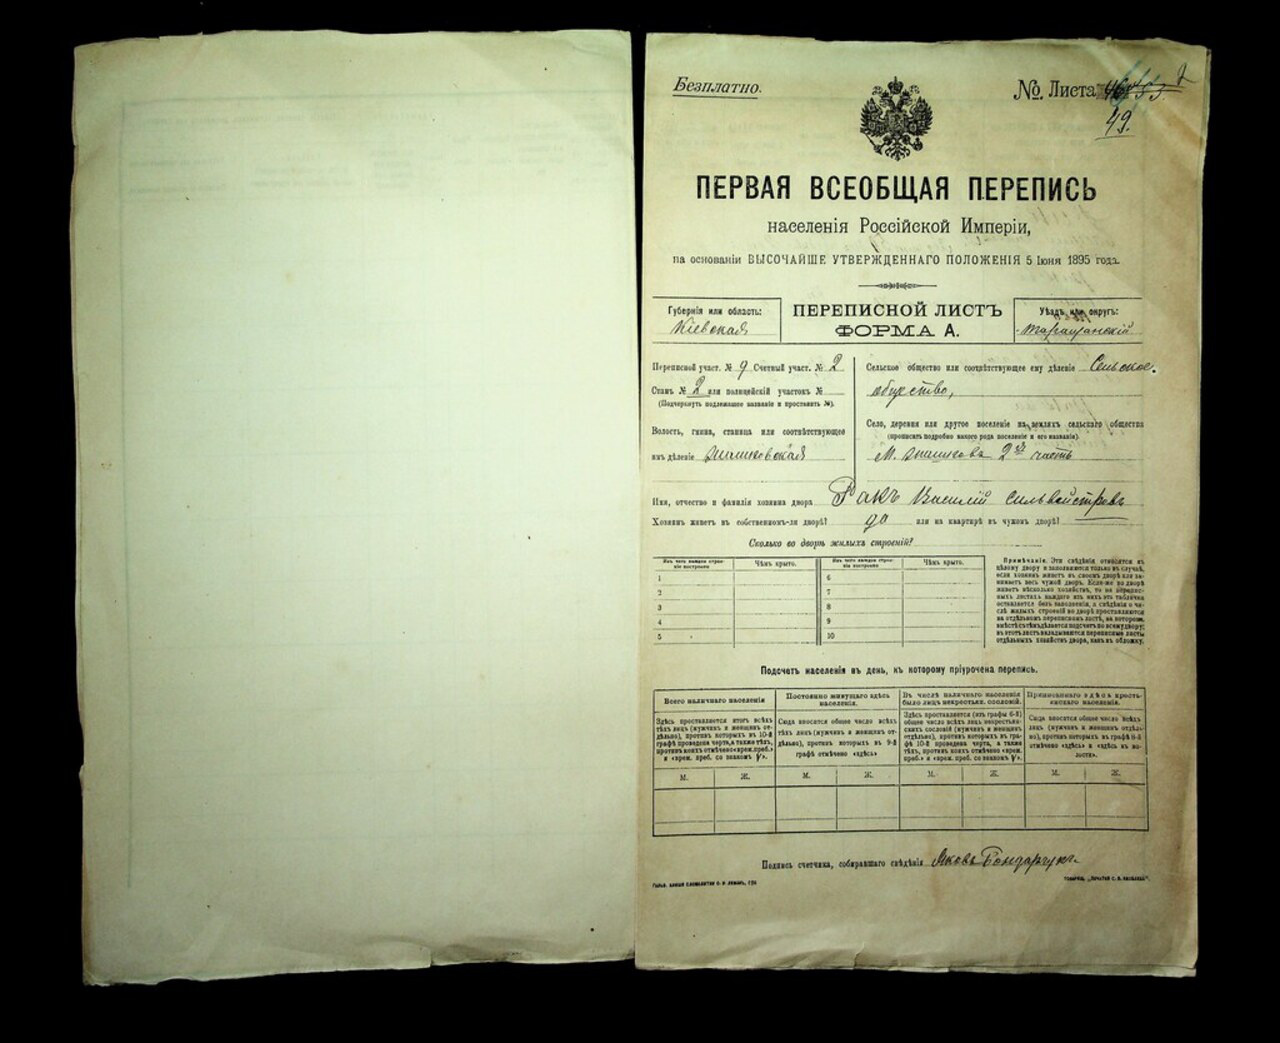 Безплатно.
№. Листа
49.
ПЕРВАЯ ВСЕОБЩАЯ ПЕРЕПИСЬ
населенія Россійской Имперіи,
на основаніи ВЫСОЧАЙШЕ УТВЕРЖДЕННАГО ПОЛОЖЕНІЯ 5 Іюня 1895 года.
Губернія или область:
Кіевская
ПЕРЕПИСНОЙ ЛИСТЪ
ФОРМА А.
Уѣздъ или округъ:
Таращанскій
Переписной участ. № 9 Счетный участ. № 2
Станъ № 2 или полицейскій участокъ №
(Подчеркнуть подлежащее названіе и проставить №).
Волость, гмина, станица или соотвѣтствующее
имъ дѣленіе
Сельское общество или соотвѣтствующее ему дѣленіе Сельское
общество,
Село, деревня или другое поселеніе на земляхъ сельскаго общества
(прописать подробно какого рода поселеніе и его названіе)
М. 2я часть
Имя, отчество и фамилія хозяина двора Ракъ Василій Сильвестровъ
Хозяинъ живетъ въ собственномъ-ли дворѣ? да или на квартирѣ въ чужомъ дворѣ?
Сколько во дворѣ жилыхъ строеній?
Изъ чего каждое строеніе построено
Чѣмъ крыто.
Изъ чего каждое строеніе построено
Чѣмъ крыто.
1
2
3
4
5
6
7
8
9
10
Примѣчаніе. Эти свѣдѣнія относятся къ
цѣлому двору и заполняются только въ случаѣ,
если хозяинъ живетъ въ своемъ дворѣ или занимаетъ
весь чужой дворъ. Если-же во дворѣ
живетъ нѣсколько хозяйствъ, то на переписныхъ
листахъ каждаго изъ нихъ эта табличка
оставляется безъ заполненія, а свѣдѣнія о числѣ
жилыхъ строеній во дворѣ проставляются
на отдѣльномъ переписномъ листѣ, на которомъ
вмѣстѣ съ тѣмъ дѣлается подсчетъ по всему двору;
въ этотъ листъ вкладываются переписные листы
отдѣльныхъ хозяйствъ двора, какъ въ обложку.
Подсчетъ населенія въ день, къ которому пріурочена перепись.
Всего наличнаго населенія
Здѣсь проставляется итогъ всѣхъ
тѣхъ лицъ (мужчинъ и женщинъ отдѣльно),
противъ которыхъ въ 10-й
графѣ проведена черта, а также тѣхъ,
противъ коихъ отмѣчено «врем. преб.»
и «врем. преб. со знакомъ V».
Постоянно живущаго здѣсь
населенія.
Сюда вносится общее число всѣхъ
тѣхъ лицъ (мужчинъ и женщинъ отдѣльно),
противъ которыхъ въ 9-й
графѣ отмѣчено «здѣсь»
Въ числѣ наличнаго населенія
было лицъ некрестьян. сословій.
Здѣсь проставляется (изъ графы 6-й)
общее число всѣхъ лицъ некрестьянскихъ
сословій (мужчинъ и женщинъ
отдѣльно), противъ которыхъ въ графѣ
10-й проведена черта, а также
тѣхъ, противъ коихъ отмѣчено «врем.
преб.» и «врем. преб. со знакомъ V».
Приписаннаго здѣсь крестьянскаго
населенія.
Сюда вносится общее число всѣхъ
лицъ (мужчинъ и женщинъ отдѣльно),
противъ которыхъ въ графѣ 8-й
отмѣчено «здѣсь» и «здѣсь въ волости».
М. Ж. М. Ж. М. Ж. М. Ж.
Подпись счетчика, собиравшаго свѣдѣнія Яковъ Бондарчукъ